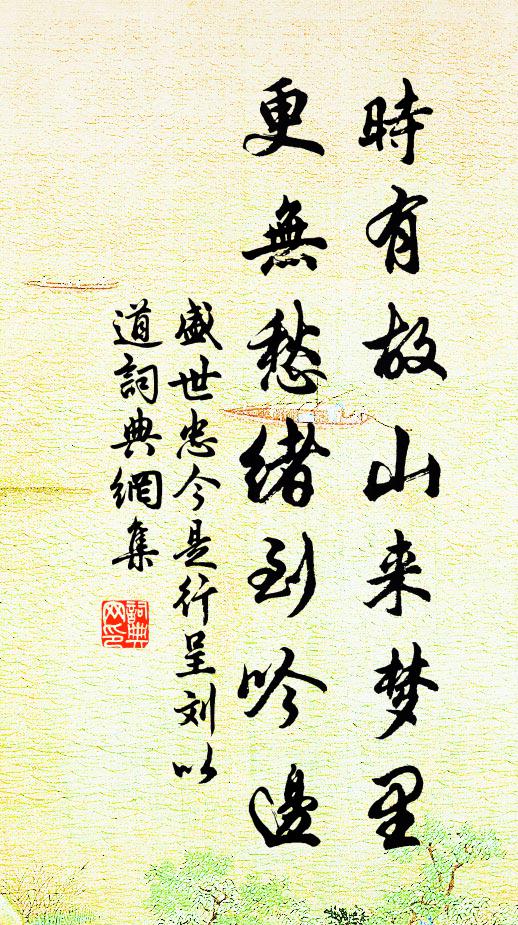 時有故山来梦里
更無愁绪到吟邊
盛世忠今是行呈刘以
道詞典網集
詞典
网印